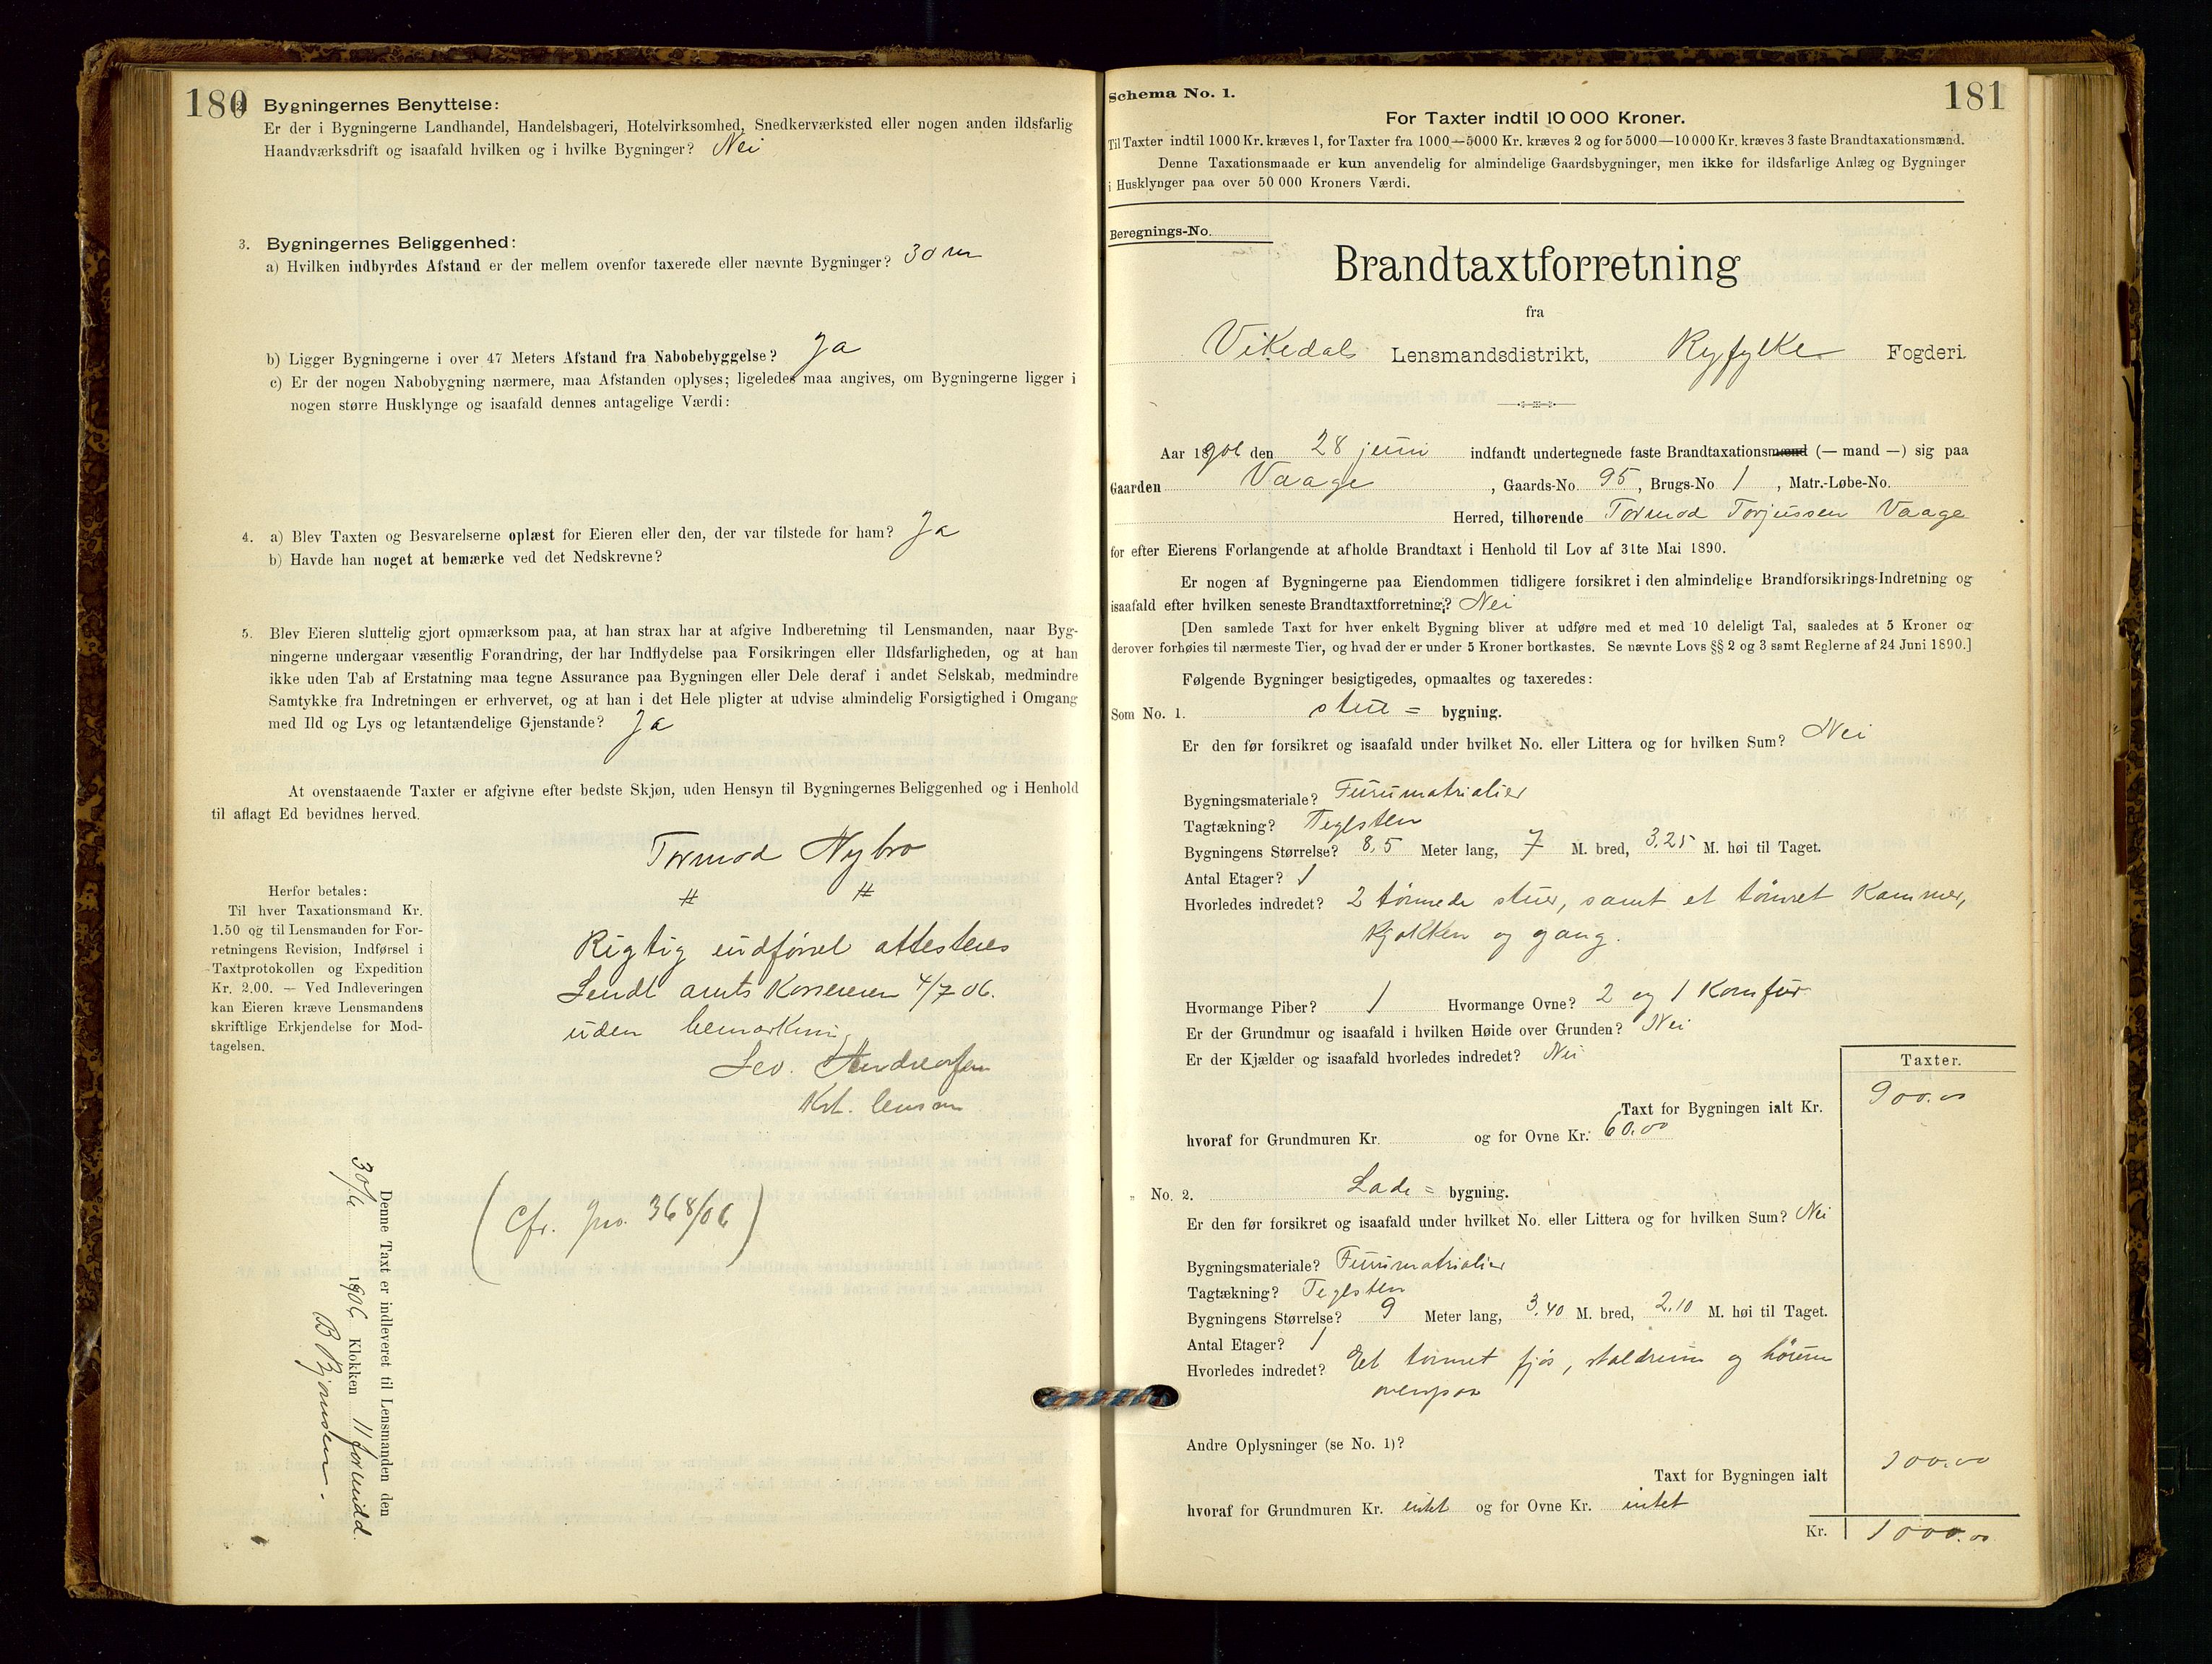 180
2. Bygningernes Benyttelse:
Er der i Bygningerne Landhandel, Handelsbageri, Hotelvirksomhed, Snedkerværksted eller nogen anden ildsfarlig
Haandværksdrift og isaafald hvilken og i hvilke Bygninger? Nei
3. Bygningernes Beliggenhed:
a) Hvilken indbyrdes Afstand er der mellem ovenfor taxerede eller nævnte Bygninger? 30 m
b) Ligger Bygningerne i over 47 Meters Afstand fra Nabobebyggelse? Ja
c) Er der nogen Nabobygning nærmere, maa Afstanden oplyses; ligeledes maa angives, om Bygningerne ligger i
nogen større Husklynge og isaafald dennes antagelige Værdi:
4. a) Blev Taxten og Besvarelserne oplæst for Eieren eller den, der var tilstede for ham? Ja
b) Havde han noget at bemærke ved det Nedskrevne?
5. Blev Eieren sluttelig gjort opmærksom paa, at han strax har at afgive Indberetning til Lensmanden, naar Byg-
ningerne undergaar væsentlig Forandring, der har Indflydelse paa Forsikringen eller Ildsfarligheden, og at han
ikke uden Tab af Erstatning maa tegne Assurance paa Bygningen eller Dele deraf i andet Selskab, medmindre
Samtykke fra Indretningen er erhvervet, og at han i det Hele pligter at udvise almindelig Forsigtighed i Omgang
med Ild og Lys og letantændelige Gjenstande? Ja
At ovenstaaende Taxter er afgivne efter bedste Skjøn, uden Hensyn til Bygningernes Beliggenhed og i Henhold
til aflagt Ed bevidnes herved.
Tormod Nybro
Herfor betales:
Til hver Taxationsmand Kr.
1.50 og til Lensmanden for For-
retningens Revision, Indførsel i
Taxtprotokollen og Expedition
Kr. 2.00. — Ved Indleveringen
kan Eieren kræve Lensmandens
skriftlige Erkjendelse for Mod-
tagelsen.
Rigtig indførsel attesteres
Sendt amts 4/7 06.
uden bemærkning
Sev. Andreassen
Kst. lensm
(Cfr. Jno. 368/06)
Denne Taxt er indleveret til Lensmanden den
30/6 1906 Klokken 11 formidd.
B Bjonsen.
181
Schema No. 1.
For Taxter indtil 10 000 Kroner.
Til Taxter indtil 1000 Kr. kræves 1, for Taxter fra 1000—5000 Kr. kræves 2 og for 5000—10 000 Kr. kræves 3 faste Brandtaxationsmænd.
Denne Taxationsmaade er kun anvendelig for almindelige Gaardsbygninger, men ikke for ildsfarlige Anlæg og Bygninger
i Husklynger paa over 50 000 Kroners Værdi.
Beregnings-No.
Brandtaxtforretning
fra
Vikedals Lensmandsdistrikt, Ryfylke Fogderi.
Aar 1906 den 28 juni indfandt undertegnede faste Brandtaxationsmænd (— mand —) sig paa
Gaarden Vaage, Gaards-No. 95, Brugs-No 1, Matr.-Løbe-No.
Herred, tilhørende Tormod Torjussen Vaage
for efter Eierens Forlangende at afholde Brandtaxt i Henhold til Lov af 31te Mai 1890.
Er nogen af Bygningerne paa Eiendommen tidligere forsikret i den almindelige Brandforsikrings-Indretning og
isaafald efter hvilken seneste Brandtaxtforretning? Nei
[Den samlede Taxt for hver enkelt Bygning bliver at udføre med et med 10 deleligt Tal, saaledes at 5 Kroner og
derover forhøies til nærmeste Tier, og hvad der er under 5 Kroner bortkastes. Se nævnte Lovs §§ 2 og 3 samt Reglerne af 24 Juni 1890.]
Følgende Bygninger besigtigedes, opmaaltes og taxeredes:
Som No. 1. stue = bygning.
Er den før forsikret og isaafald under hvilket No. eller Littera og for hvilken Sum? Nei
Bygningsmateriale? Furumatrialier
Tagtækning? Teglsten
Bygningens Størrelse? 8,5 Meter lang, 7 M. bred, 3.25 M. høi til Taget.
Antal Etager? 1
Hvorledes indredet? 2 tømrede stuer, samt et tømret Kammer,
Kjøkken og gang.
Hvormange Piber? 1 Hvormange Ovne? 2 og 1 Komfur
Er der Grundmur og isaafald i hvilken Høide over Grunden? Nei
Er der Kjælder og isaafald hvorledes indredet? Nei
Taxter.
Taxt for Bygningen ialt Kr. 900.00
hvoraf for Grundmuren Kr. og for Ovne Kr. 60.00
" No. 2. Lade = bygning.
Er den før forsikret og isaafald under hvilket No. eller Littera og for hvilken Sum? Nei
Bygningsmateriale? Furumatrialier
Tagtækning? Teglsten
Bygningens Størrelse? 9 Meter lang, 3.40 M. bred, 2.10 M. høi til Taget.
Antal Etager? 1
Hvorledes indredet? Et tømret fjøs, staldrum og hørum
ovenpaa
Andre Oplysninger (se No. 1)?
Taxt for Bygningen ialt 100.00
hvoraf for Grundmuren Kr. intet og for Ovne Kr. intet
Kr. 1000.00